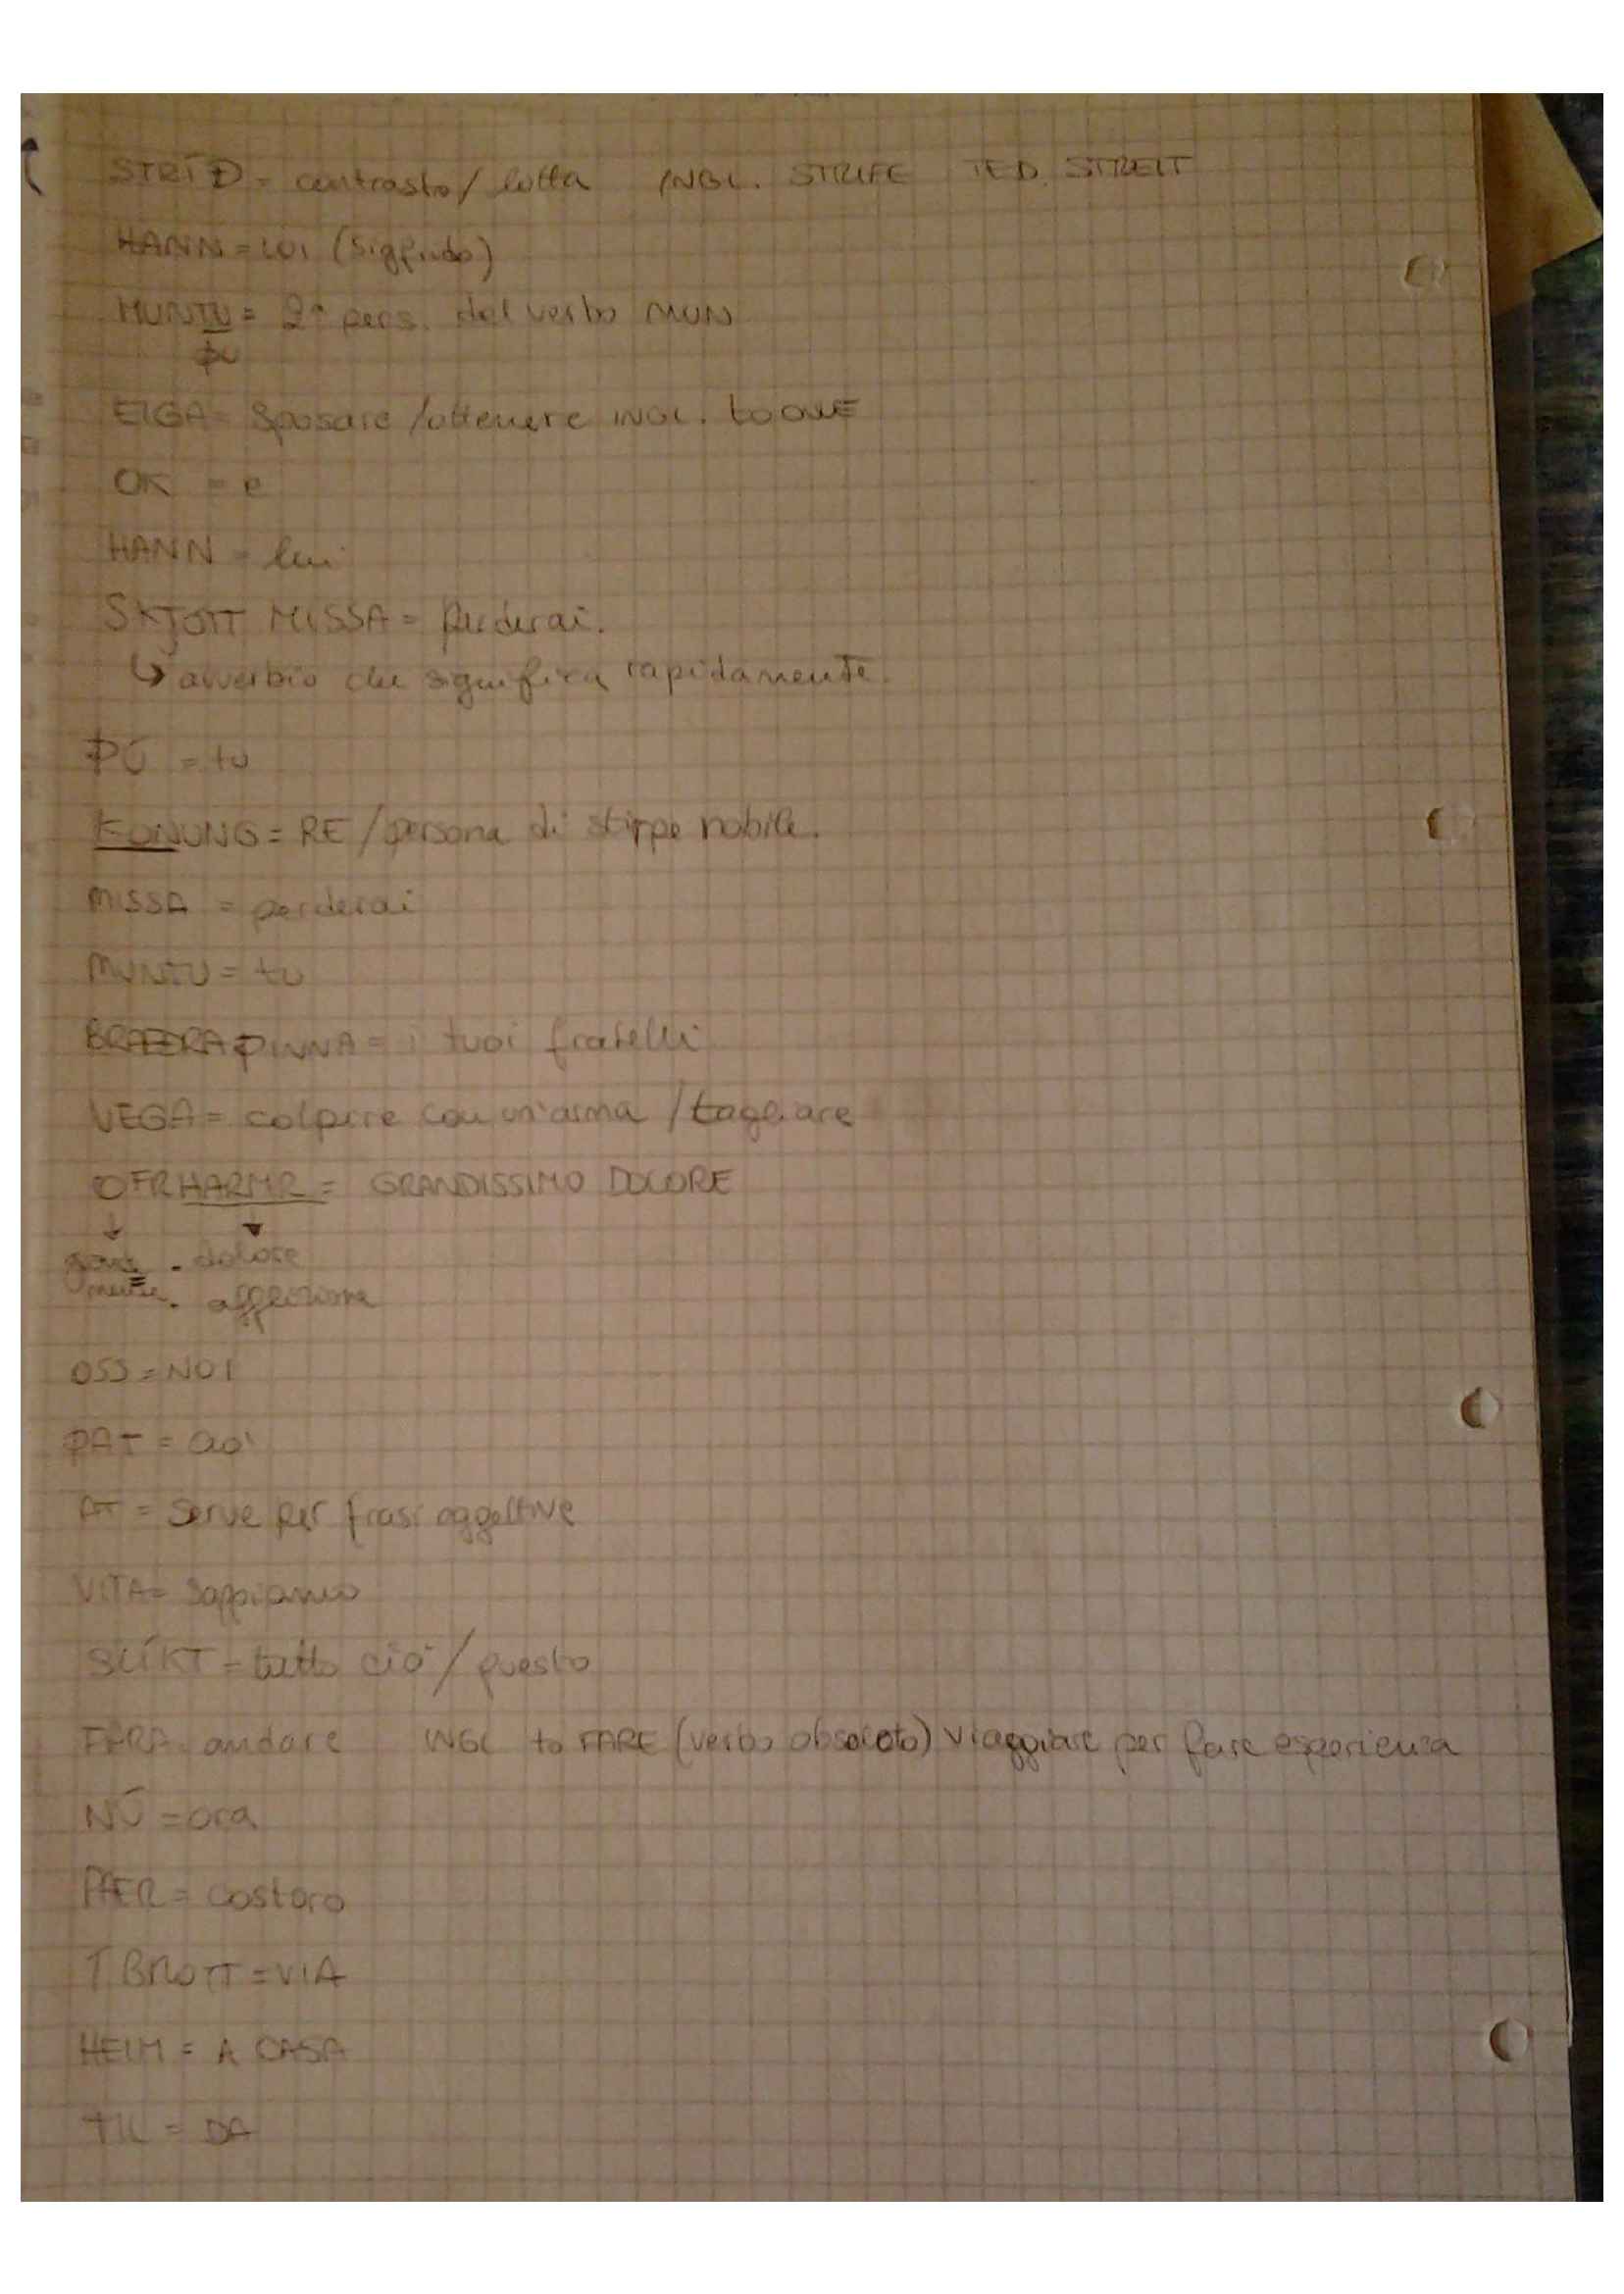 STRÍÐ = contrasto/lotta INGL. STRIFE TED. STREIT
HANN = LUI (Sigfrido)
MUNTU = 2ª pers. del verbo MUN
ÞU
EIGA = Sposare /ottenere INGL. to OWE
OK = e
HANN = lui
SKJOTT MISSA = perderai.
↳ avverbio che significa rapidamente.
ÞÚ = tu
KONUNG = RE /persona di stirpe nobile.
MISSA = perderai
MUNTU = tu
BRAEÐRA ÞINNA = i tuoi fratelli
VEGA = colpire con un'arma /tagliare
OFRHARMR = GRANDISSIMO DOLORE
↓ ▾
- dolore
mente. - afflizione
OSS = NOI
ÞAT = ciò
AT = serve per frasi oggettive
VITA = sappiamo
SLÍKT = tutto ciò / questo
FARA andare INGL to FARE (verbo obsoleto) viaggiare per fare esperienza
NÚ = ora
ÞAER = costoro
Í BROTT = VIA
HEIM = A CASA
TIL = DA